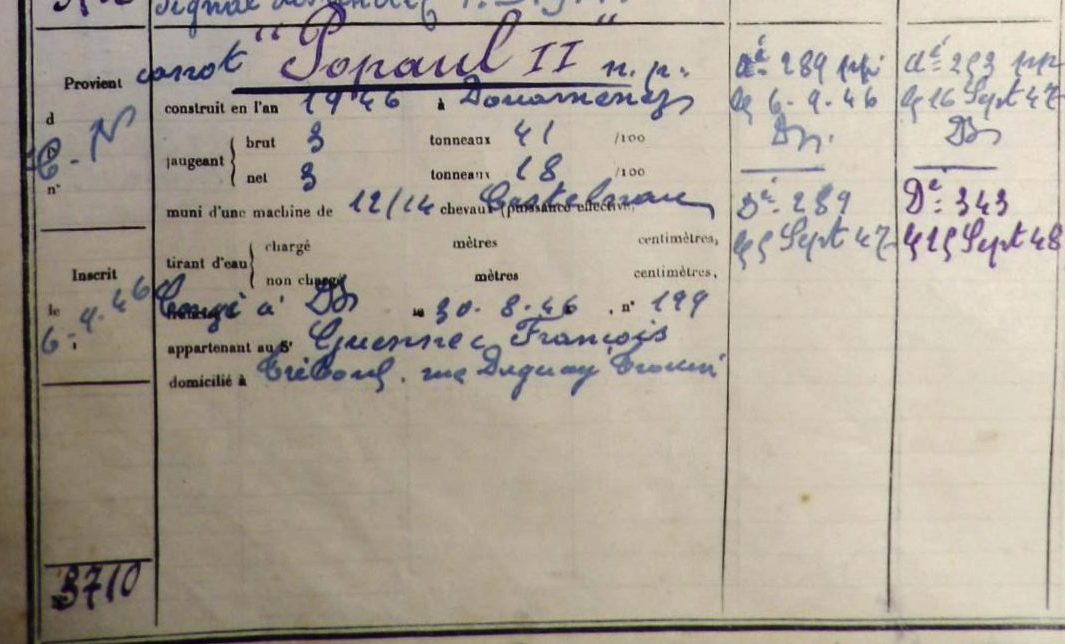 Signal
Provient
d
C. N
n°
Inscrit
le
6.9.46
3710
canot "Popaul II" n. p.
construit en l'an 1946 à Douarnenez
jaugeant { brut 3 tonneaux 41 /100
net 3 tonneaux 18 /100
muni d'une machine de 12/14 chevaux (puissance effective, Castelnau
tirant d'eau { chargé mètres centimètres,
non chargé mètres centimètres,
Congé à Dz le 30.8.46, n° 199
appartenant au Sr Guennec François
domicilié à Tréboul. rue Duguay Trouin
Dé 289
le 6.9.46
Dz.
Dé 289
le 5 Sept 47
dé 293
le 16 Sept 47
Dz
Dé 343
le 15 Sept 48